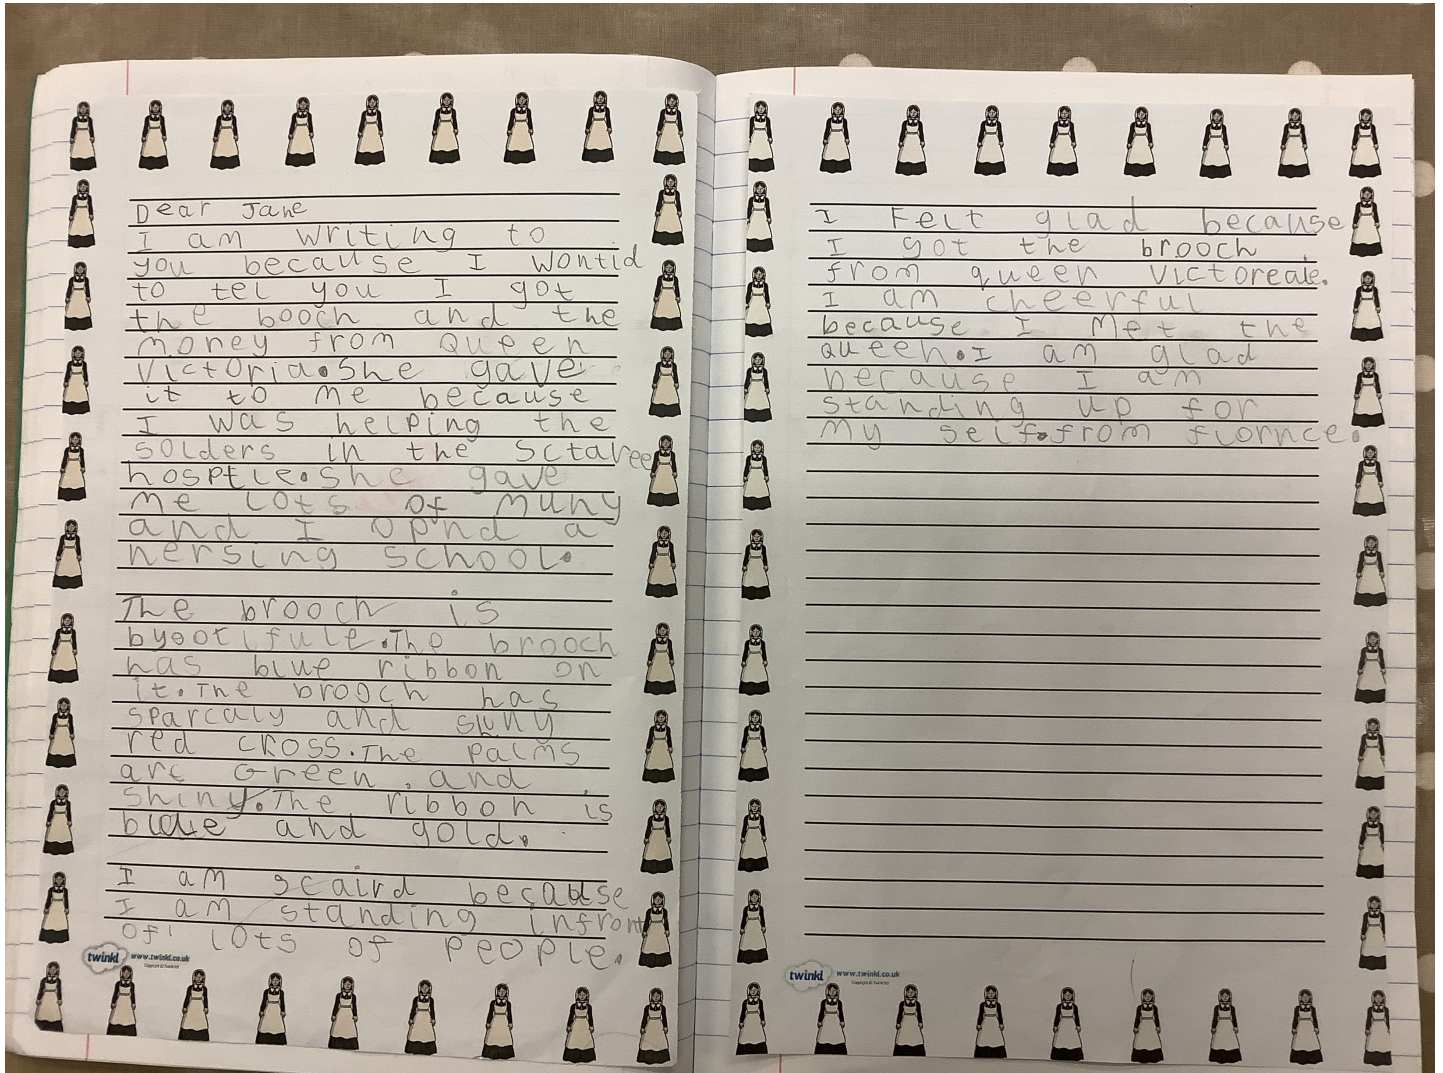 Dear Jane
I am writing to
you because I wontid
to tel you I got
the booch and the
money from Queen
Victoria. She gave
it to me because
I was helping the
solders in the Sctaree
hosptle. she gave
me lots of muny
and I opnd a
nersing school.
The brooch is
byootifule. The brooch
has blue ribbon on
it. The brooch has
sparcaly and
red cross. The palms
are Green and
shiny. The ribbon is
and gold.
I am scaird because
I am standing infront
of lots of people.
twinkl www.twinkl.co.uk
Copyright © Twinkl Ltd
I Felt glad because
I got the brooch
from queen Victoreale.
I am cheerful
because I Met the
queen. I am glad
because I am
standing up for
my self. from flornce.
twinkl www.twinkl.co.uk
Copyright © Twinkl Ltd